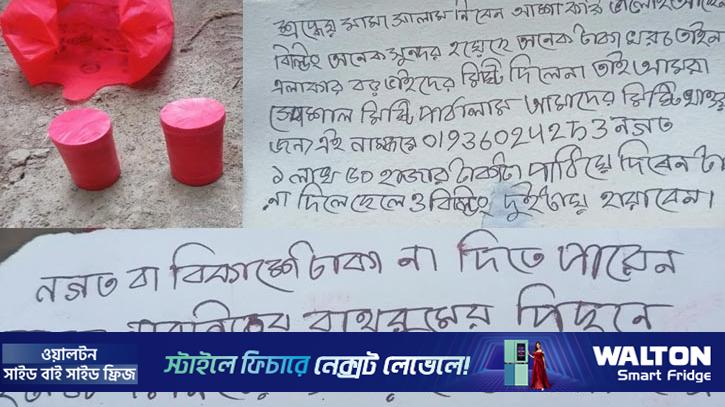 শ্রদ্ধেয় মামা সালাম নিবেন আশা করি ভালোই আছেন
বিল্ডিং অনেক সুন্দর হয়েছে অনেক টাকা খরচ তাইনা
এলাকার বড় ভাইদের মিষ্টি দিলেনা তাই আমরা
স্পেশাল মিষ্টি পাঠালাম আমাদের মিষ্টি খাওয়ার
জন্য এই নাম্বারে নগত
১ লাখ ৫০ হাজার টাকটা পাঠিয়ে দিবেন টা
না দিলে ছেলে ও বিল্ডিং দুইটায় হারাবেন।
নগত বা বিকাশে টাকা না দিতে পারেন
বাথরুমের পিছনে
ওয়ালটন
সাইড বাই সাইড ফ্রিজ
স্টাইলে ফিচারে নেক্সট লেভেলে!
WALTON
Smart Fridge